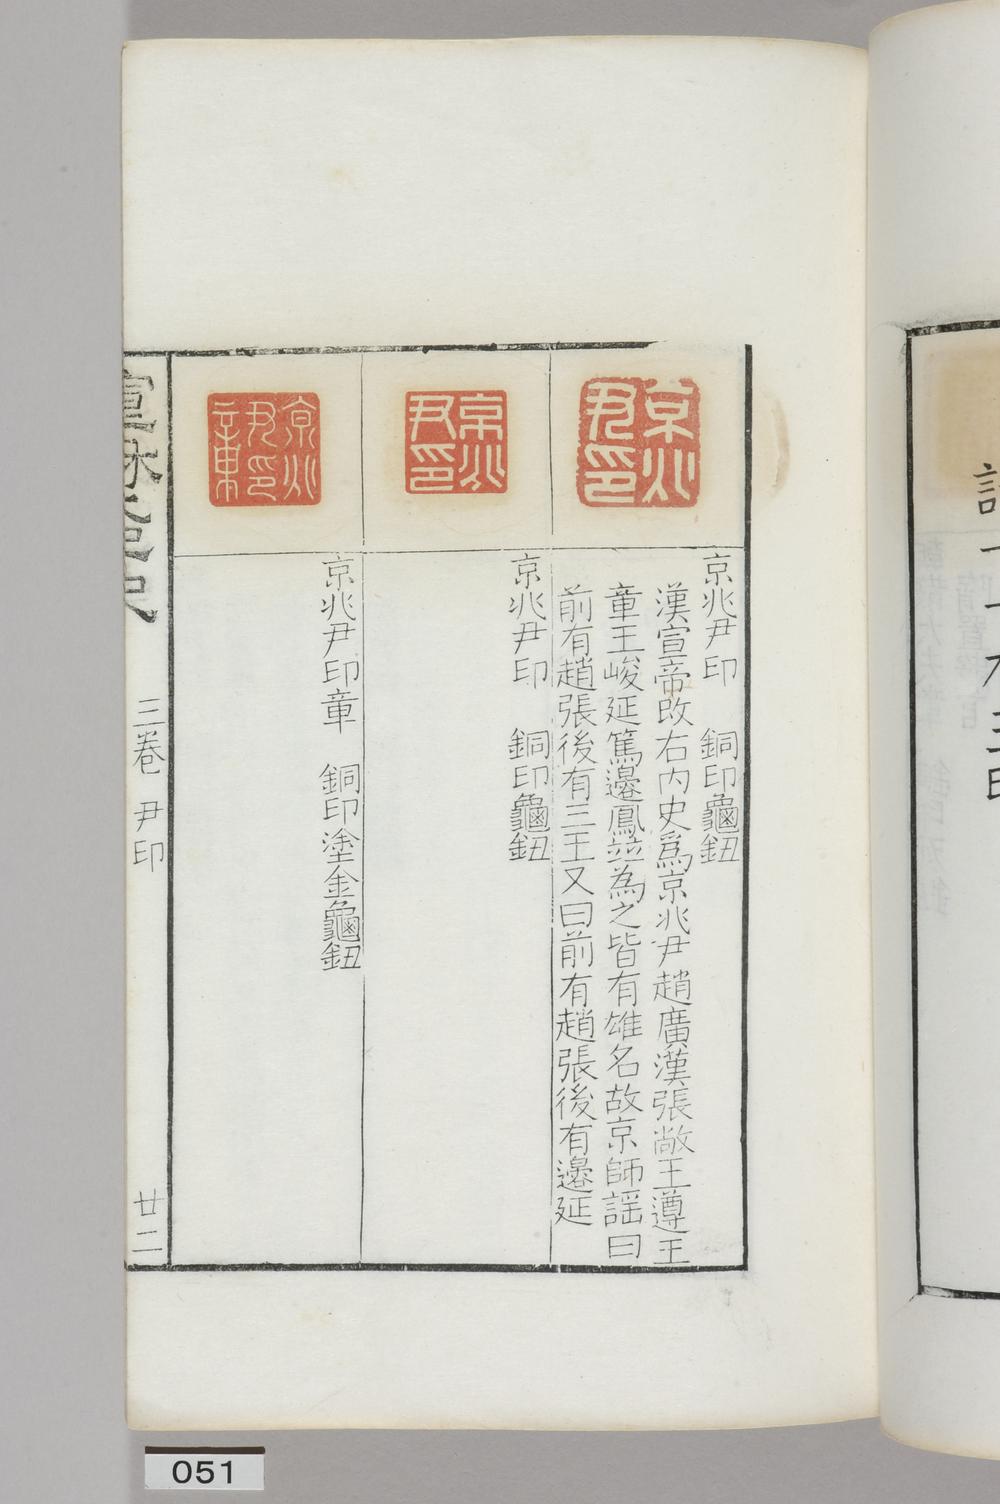 京兆尹印
京兆尹印　銅印龜鈕
漢宣帝改右內史爲京兆尹趙廣漢張敞王遵王
章王峻延篤邊鳳並為之皆有雄名故京師謡曰
前有趙張後有三王又曰前有趙張後有邊延
京兆尹印
京兆尹印　銅印龜鈕
京兆尹印章
京兆尹印章　銅印塗金龜鈕
三卷　尹印
廿二
051